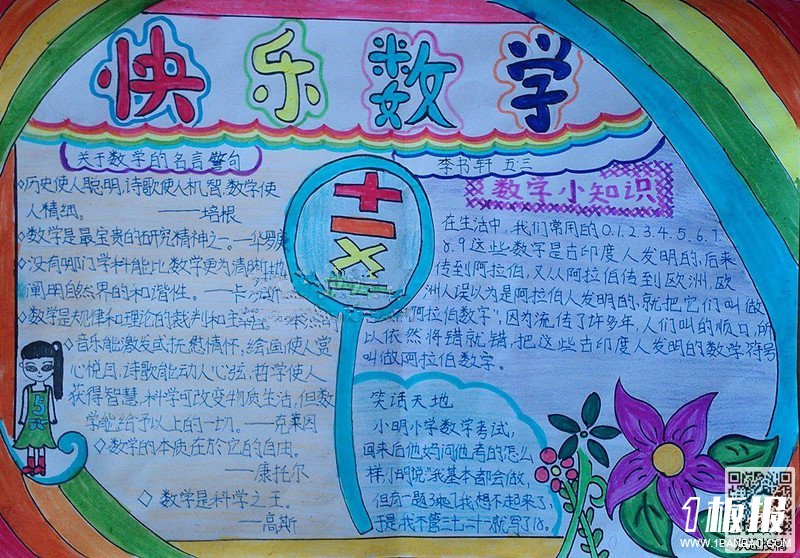 快乐数学
关于数学的名言警句
李书轩 五三
◇历史使人聪明,诗歌使人机智,数学使
人精细。——培根
◇数学是最宝贵的研究精神之一。—华罗庚
◇没有哪门学科能比数学更为清晰地
阐明自然界的和谐性。—卡
◇数学是规律和理论的裁判和主宰
◇音乐能激发或抚慰情怀,绘画使人赏
心悦目,诗歌能动人心弦,哲学使人
获得智慧,科学可改变物质生活,但数
学能给予以上的一切。——克莱因
◇数学的本质在於它的自由。
——康托尔
◇数学是科学之王。
——高斯
+
-
×
数学小知识
在生活中,我们常用的0.1.2.3.4.5.6.7.
8.9这些数学是古印度人发明的,后来
传到阿拉伯,又从阿拉伯传到欧洲,欧
洲人误以为是阿拉伯人发明的,就把它们叫做
"阿拉伯数字",因为流传了许多年,人们叫的顺口,所
以依然将错就错,把这些古印度人发明的数学符号
叫做阿拉伯数字。
笑话天地
小明小学数学考试,
回来后他妈问他考的怎么
样,小明说"我基本都会做,
但有一题3乘7我想不起来了,
于是我不管三七二十一就写了18。
5
1板报
WWW.1BANBAO.COM